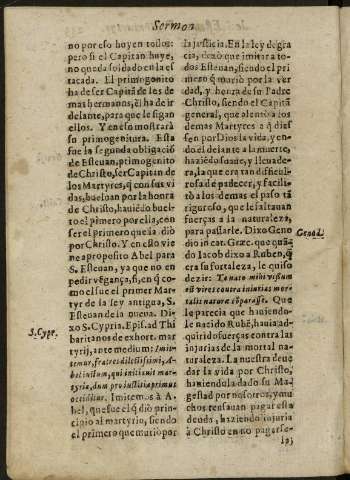 Sermon
no por eso huyen todos:
pero si el Capitan huye,
no queda soldado en la es
tacada. El primogenito
ha de ser Capitã de los de
mas hermanos, èl ha de ir
delante, para que le sigan
ellos. Y en esto mostrarà
su primogenitura. Esta
fue la segunda obligació
de Estevan, primogenito
de Christo, ser Capitan de
los Martyres, q̃ con sus vi
das, buelvan por la honra
de Christo, haviēdo buel-
to el primero por ella, con
ser el primero que la diò
por Christo. Y en esto vie
ne a proposito Abel para
S. Estevan, ya que no en
pedir vēgança, si, en q̃ co
mo el fue el primer Mar-
tyr de la ley antigua, S.
Estevan de la nueva. Di-
xo S. Cypria. Epis. ad Thi
baritanos de exhort. mar
S. Cypr.
tyrij, ante medium: Imi-
temur, fratres dilectissimi, A-
bel iustum, qui initiavit mar-
tyria, dum pro iustitia primus
occiditur. Imitemos à A-
bel, que fue el q̃ diò prin-
cipio al martyrio, siendo
el primero que muriò por
la justicia. En la ley de gra
cia, dexò que imitar a to-
dos Estevan, siendo el pri
mero q̃ muriò por la ver
dad, y honra de su Padre
Christo, siendo el Capitã
general, que alentò a los
demas Martyres a q̃ dies
sen por Dios la vida, y en-
do èl delante a la muerte,
haziēdo suave, y llevade-
ra, la que era tan dificul-
tosa de padecer, y facili-
tò a los demas el paso tã
riguroso, que le faltavan
fuerças a la naturaleza,
para passarle. Dixo Geno
dio in cat. Græc. que quã-
Genad.
do Iacob dixo a Ruben, q̃
era su fortaleza, le quiso
dezir: Tu nato mihi visum
est vires contra iniurias mor-
talis naturæ cōparasse. Que
le parecia que haviendo-
le nacido Rubē, havia ad-
quirido fuerças contra las
injurias de la mortal na-
turaleza. La nuestra deve
dar la vida por Christo,
haviendola dado su Ma-
gestad por nosotros, y mu
chos rensavan pagar esta
deuda, haziendo injuria
à Christo en no pagarse-
la;